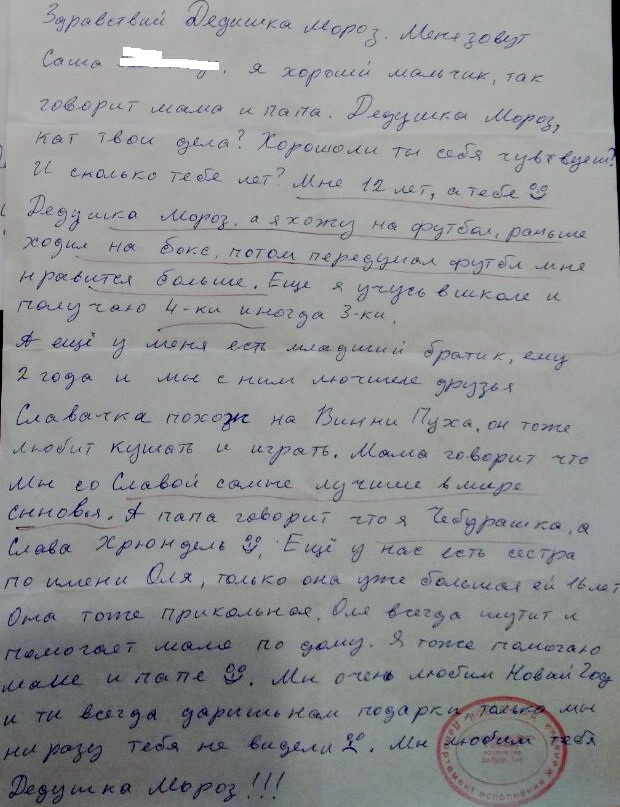 Здравствий Дедишка Мороз. Меня зовут
Саша я хороший мальчик, так
говорит мама и папа. Дедушка Мороз,
кат твои дела? Хорошоли ты себя чувтвуеш?
И сколько тебе лет? Мне 12 лет, а тебе
Дедушка Мороз, а я хожу на футбол, раньше
ходил на бокс, потом передумал футбл мне
нравится больше. Еще я учусь в школе и
получаю 4-ки иногда 3-ки.
А ещё у меня есть младший братик, ему
2 года и мы с ним лючшие друзья
Славачка похож на Винни Пуха, он тоже
любит кушать и играть. Мама говорит что
мы со Славой самые лучшие в мире
сыновья. А папа говорит что я Чебурашка, а
Слава Хрюндель. Ещё у нас есть сестра
по имени Оля, только она уже большая ей 16 лет
Она тоже прикольная. Оля всегда шутит и
помогает маме по дому. Я тоже помогаю
маме и папе. Мы очень любим Новый Год
и ты всегда даришь нам подарки только мы
ни разу тебя не видели. Мы любим тебя
Дедушка Мороз!!!
Департамент исполнения желаний